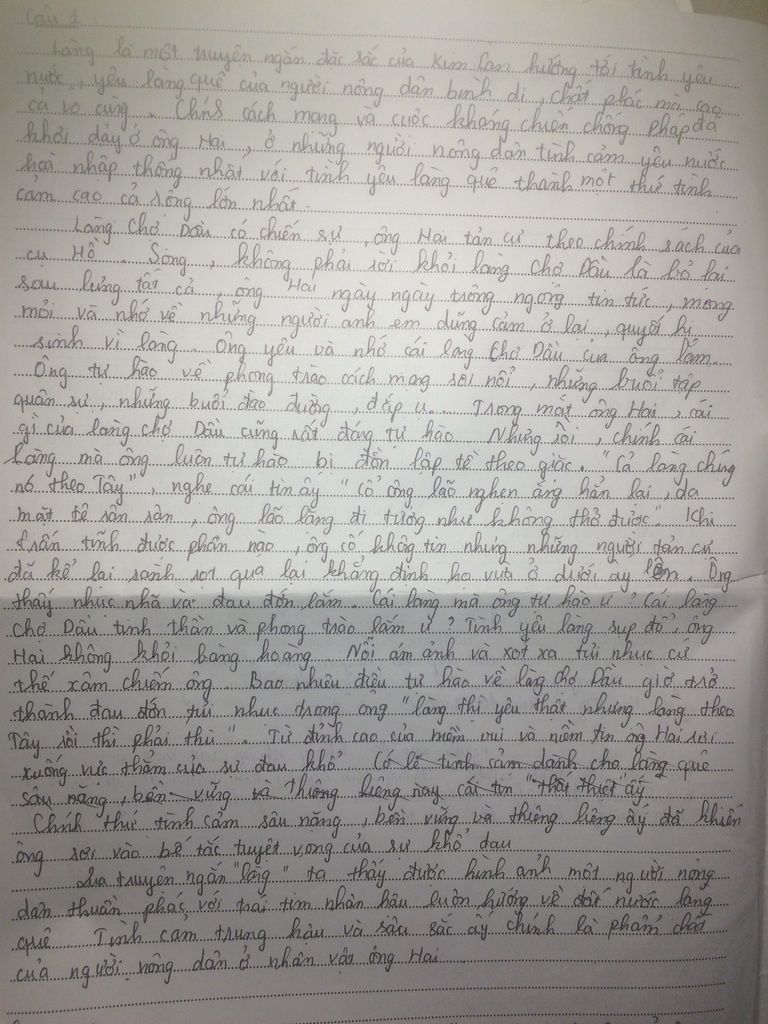 Câu 1
Làng là một truyện ngắn đặc sắc của Kim Lân hướng tới tình yêu
nước, yêu làng quê của người nông dân bình dị, chất phác mà cao
cả vô cùng. Chính cách mạng và cuộc kháng chiến chống pháp đã
khơi dậy ở ông Hai, ở những người nông dân tình cảm yêu nước
hoà nhập thống nhất với tình yêu làng quê thành một thứ tình
cảm cao cả rộng lớn nhất.
Làng Chợ Dầu có chiến sự, ông Hai tản cư theo chính sách của
cụ Hồ. Song, không phải rời khỏi làng chợ Dầu là bỏ lại
sau lưng tất cả, ông Hai ngày ngày trông ngóng tin tức, mong
mỏi và nhớ về những người anh em dũng cảm ở lại, quyết hi
sinh vì làng. Ông yêu và nhớ cái làng Chợ Dầu của ông lắm.
Ông tự hào về phong trào cách mạng sôi nổi, những buổi tập
quân sự, những buổi đào đường, đắp ụ.... Trong mắt ông Hai, cái
gì của làng chợ Dầu cũng rất đáng tự hào. Nhưng rồi, chính cái
làng mà ông luôn tự hào bị đồn lập tề theo giặc. "Cả làng chúng
nó theo Tây", nghe cái tin ấy "cổ ông lão nghẹn ắng hẳn lại, da
mặt tê rân rân, ông lão lặng đi tưởng như không thở được". Khi
trấn tĩnh được phần nào, ông cố không tin nhưng những người tản cư
đã kể lại rành rọt quá lại khẳng định họ vừa ở dưới ấy lên. Ông
thấy nhục nhã và đau đớn lắm. Cái làng mà ông tự hào ư? Cái làng
Chợ Dầu tinh thần và phong trào lắm ư? Tình yêu làng sụp đổ, ông
Hai không khỏi bàng hoàng. Nỗi ám ảnh và xót xa tủi nhục cứ
thế xâm chiếm ông. Bao nhiêu điều tự hào về làng Chợ Dầu giờ trở
thành đau đớn tủi nhục trong ông "làng thì yêu thật nhưng làng theo
Tây rồi thì phải thù". Từ đỉnh cao của niềm vui và niềm tin ông Hai rơi
xuống vực thẳm của sự đau khổ. Có lẽ tình cảm dành cho làng quê
sâu nặng, bền vững và thiêng liêng này cái tin "thất thiệt" ấy
Chính thứ tình cảm sâu nặng, bền vững và thiêng liêng ấy đã khiến
ông rơi vào bế tắc tuyệt vọng của sự khổ đau
Qua truyện ngắn "làng" ta thấy được hình ảnh một người nông
dân thuần phác, với trái tim nhân hậu luôn hướng về đất nước làng
quê. Tình cảm trung hậu và sâu sắc ấy chính là phẩm chất
của người nông dân ở nhân vật ông Hai.